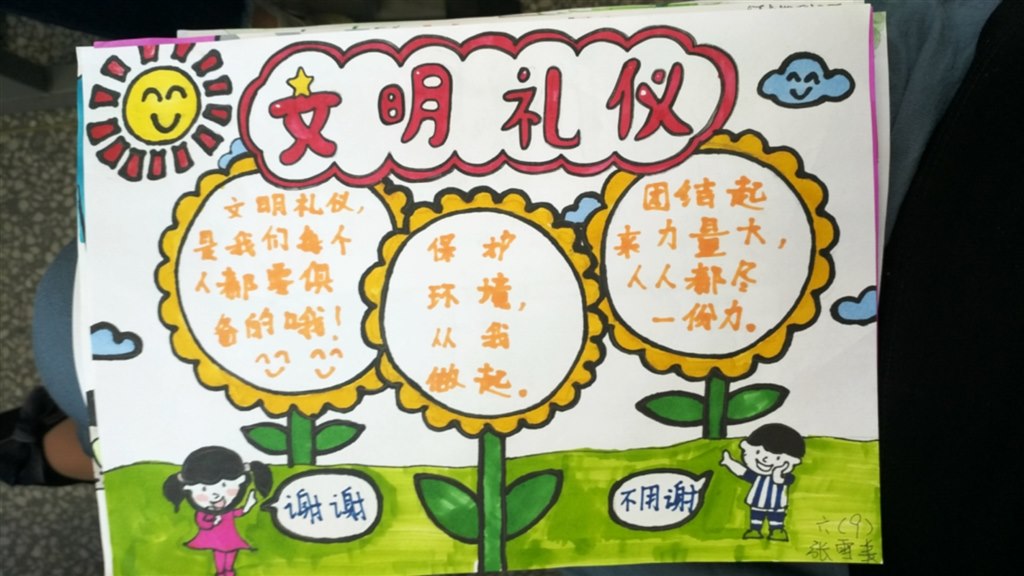 文明礼仪
文明礼仪,
是我们每个
人都要俱
备的哦!
保护
环境,
从我
做起。
团结起
来力量大,
人人都尽
一份力。
谢谢
不用谢
六(9)
张雪